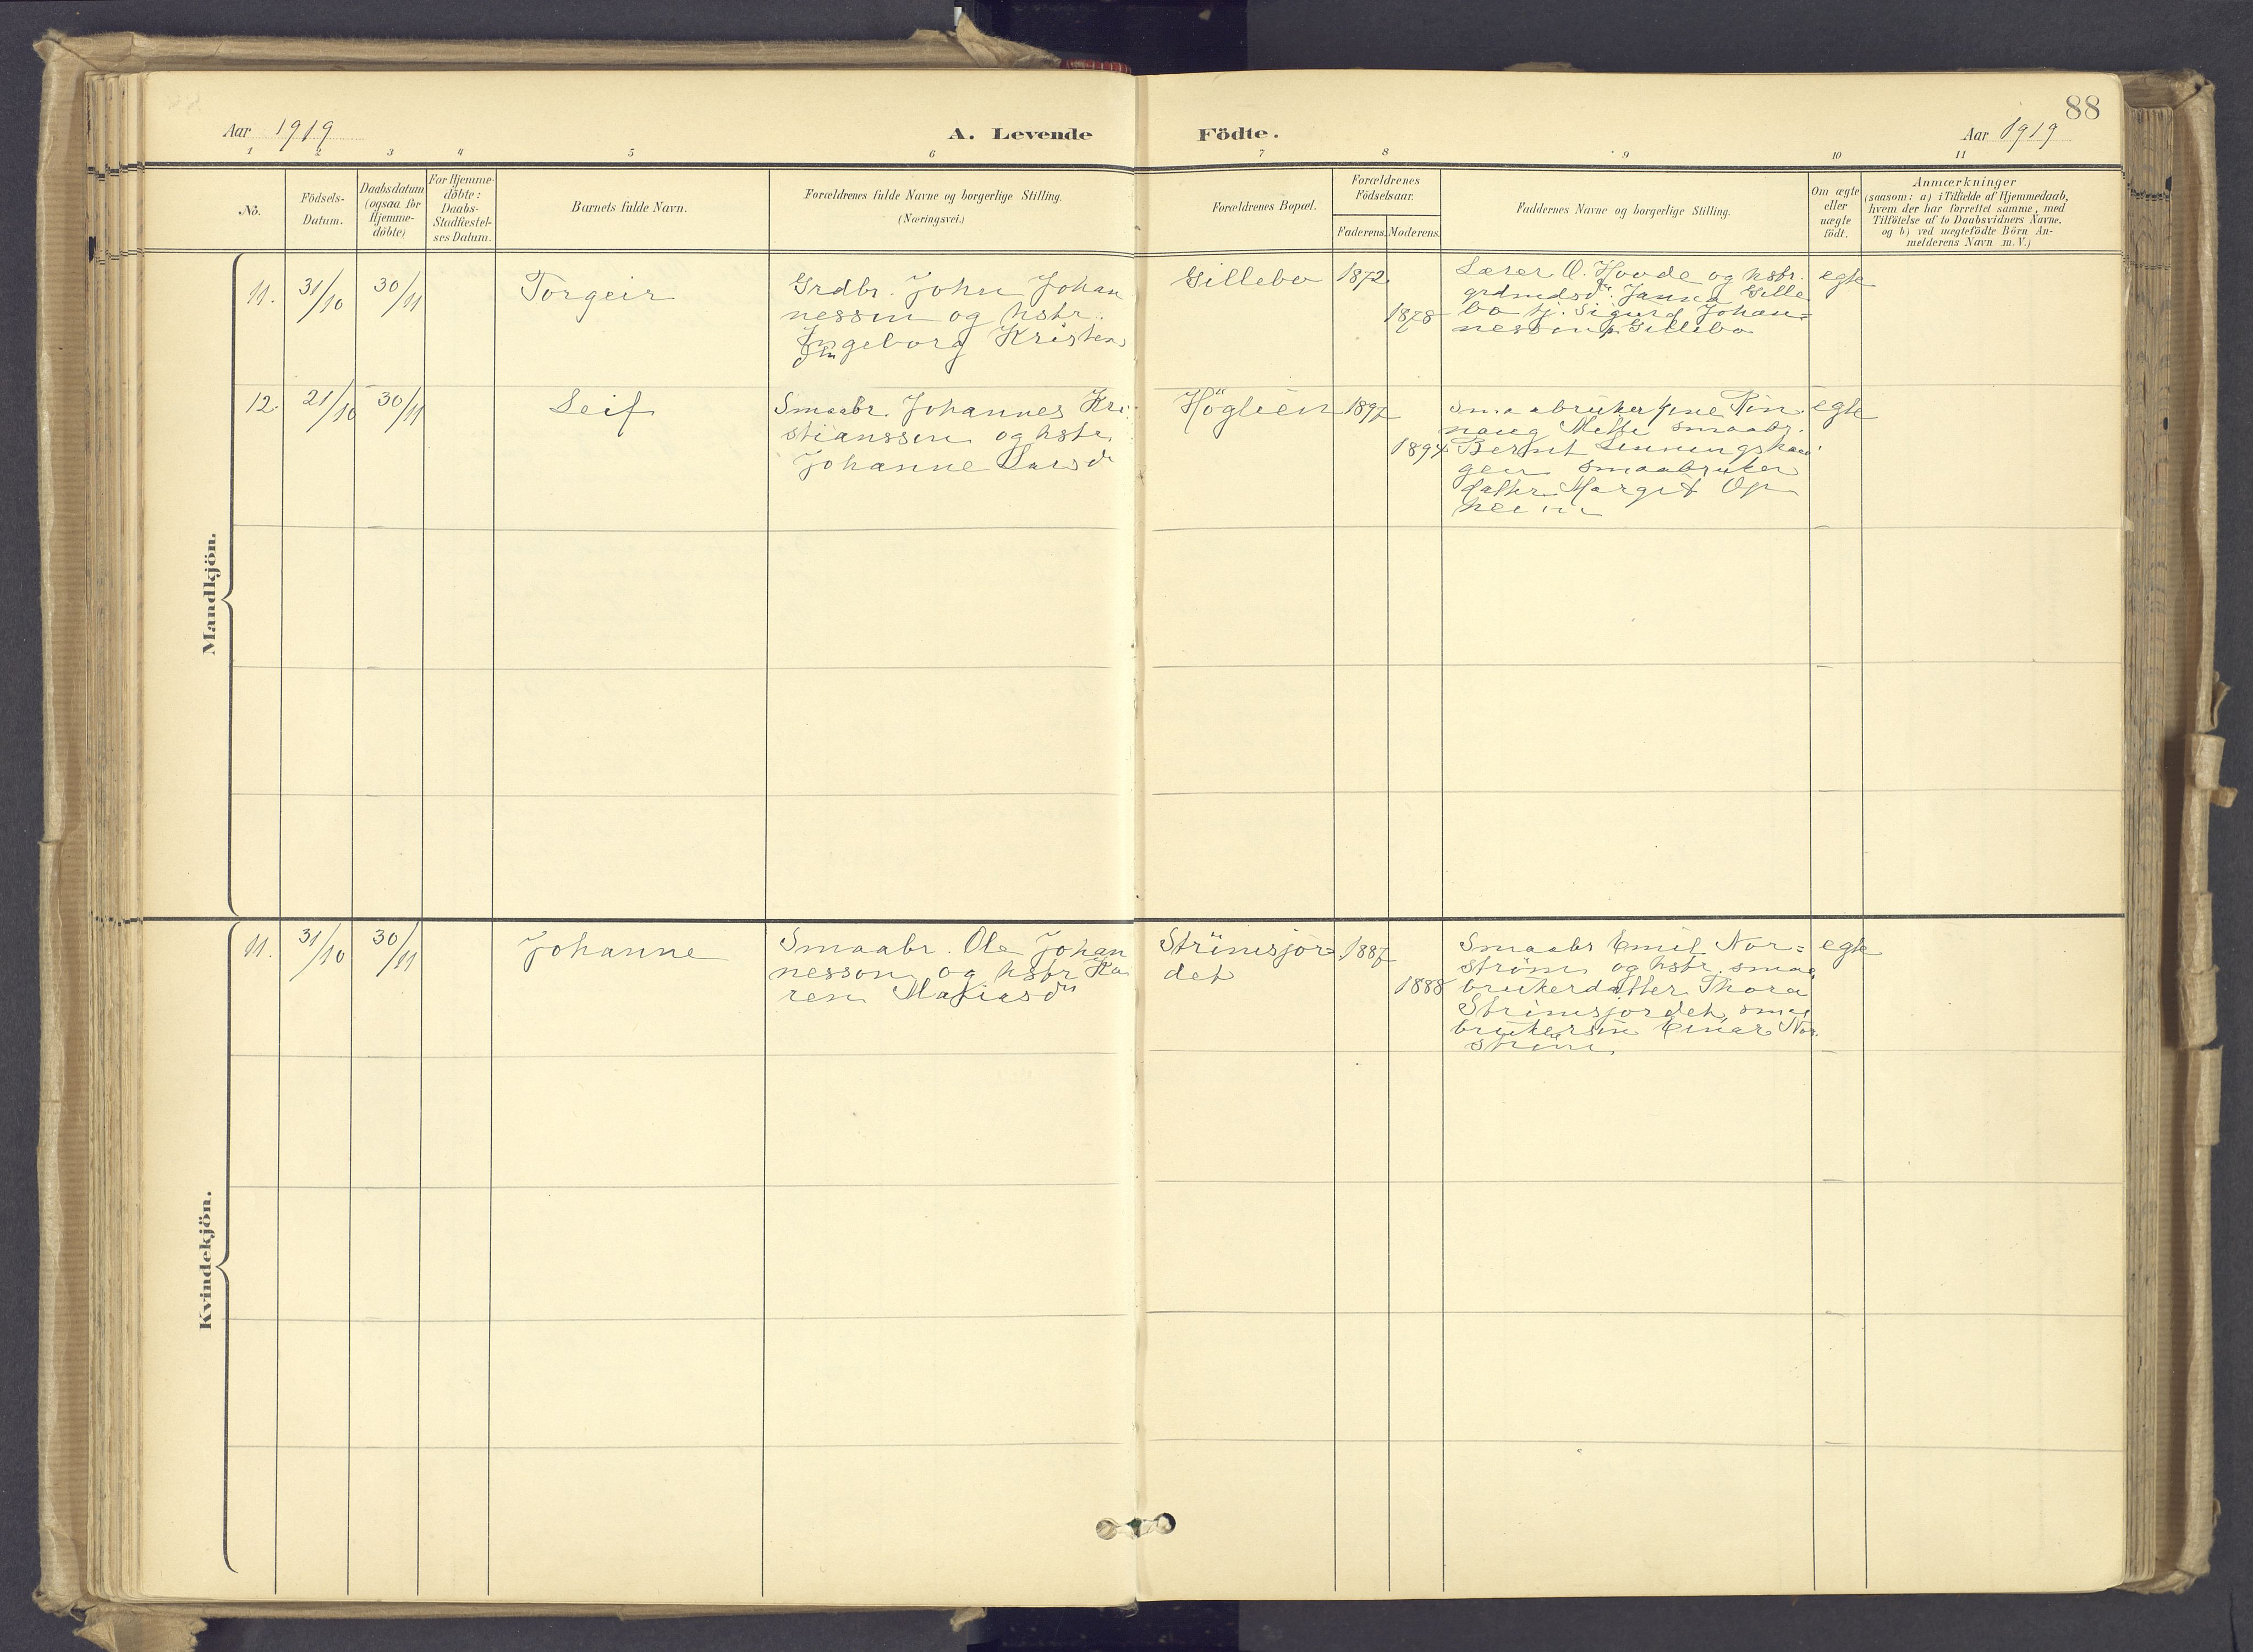 88
Aar 1919
A. Levende Födte.
Aar 1919
1 2 3 4 5 6 7 8 9 10 11
No.
Födsels-
Datum.
Daabsdatum
(ogsaa for
Hjemme-
döbte)
For Hjemme-
döbte:
Daabs-
Stadfæstel-
ses Datum.
Barnets fulde Navn.
Forældrenes fulde Navne og borgerlige Stilling.
(Næringsvei.)
Forældrenes Bopæl.
Forældrenes
Födselsaar.
Faderens. Moderens.
Faddernes Navne og borgerlige Stilling.
Om ægte
eller
uægte
födt.
Anmærkninger
(saasom: a) i Tilfælde af Hjemmedaab,
hvem der har forrettet samme, med
Tilföielse af to Daabsvidners Navne.
og b) ved uægtefödte Börn An-
melderens Navn m. V.)
Mandkjön.
11. 31/10 30/11
Torgeir
Grdbr. John Johan
nessen og hstr.
Ingeborg Kristens
Gillebo
1872
1878
Lærer O. Hovde og hstr.
Janna Gille
bo tj. Sigurd Johan=
nessen Gillebo
egte
12. 21/10 30/11
Leif
Smaabr. Johannes Kri
stianssen og hstr
Johanne Larsdr
Höglien
1897
1894
Smaabruker
naug smaabr.
Bernt
gen smaabruker
datter Margit Op
heim
egte
Kvindekjön.
11. 31/10 30/11
Johanne
Smaabr. Ole Johan
nesson og hstr Ka
ren Matiasdr
Strömsjor=
det
1887
1888
Smaabr Emil Nor=
ström og hstr. smaa
brukerdatter Thora
Strömsjordet, smaa
brukersön Einar Nor
ström
egte